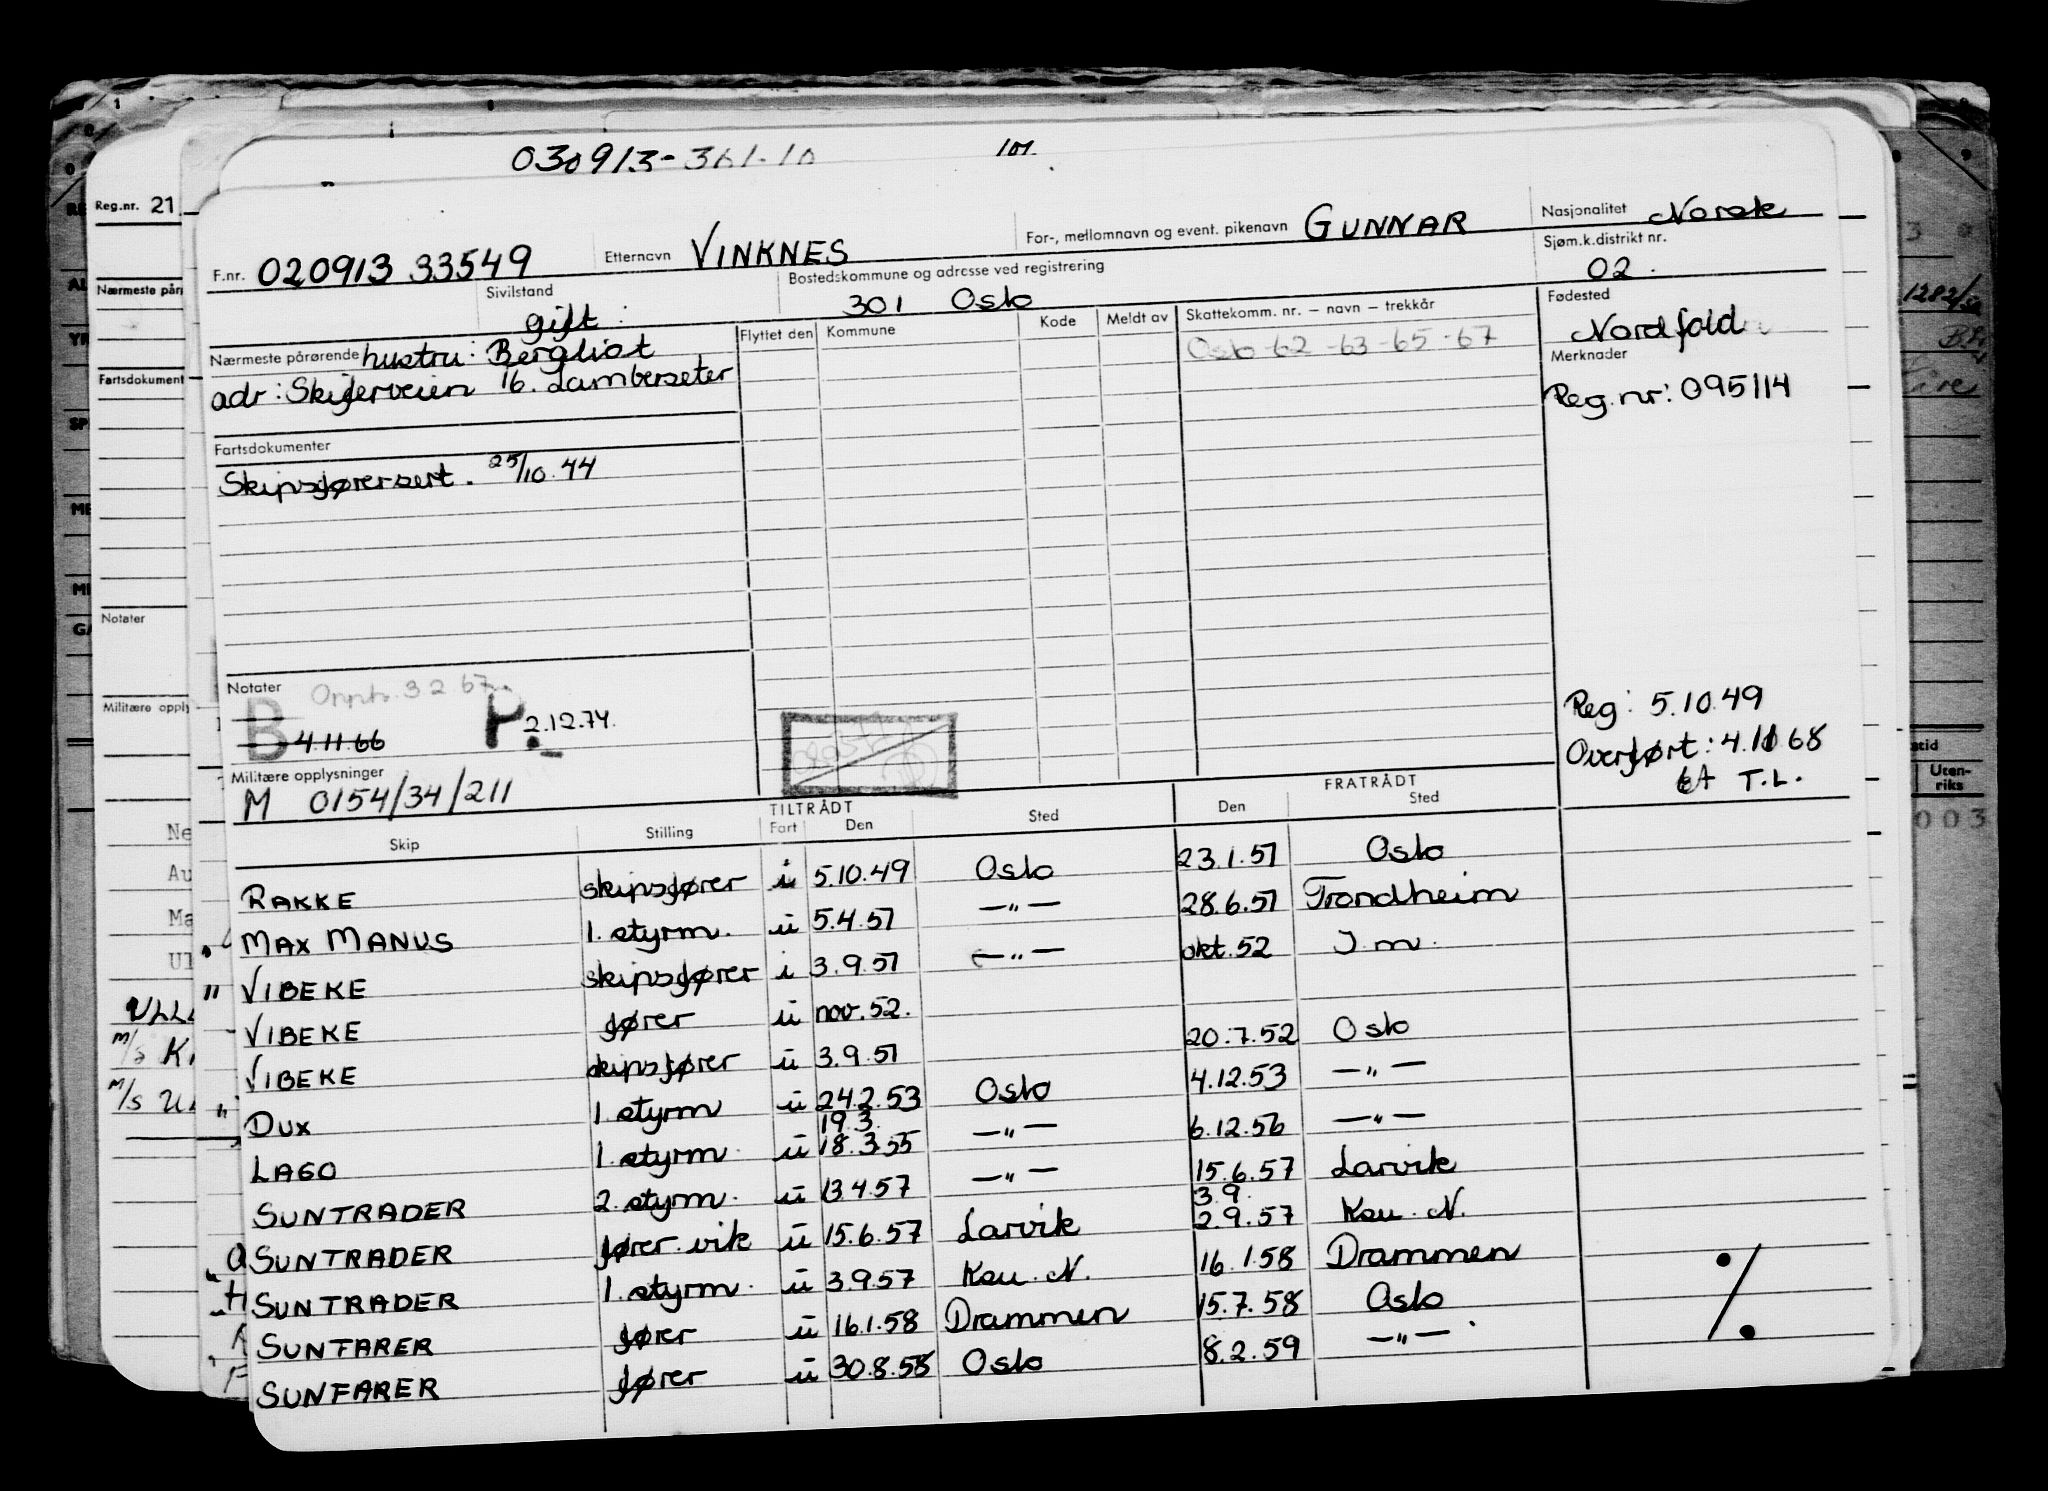 030913-361-10 101
Reg.nr. 21
F.nr. 020913 33549 Etternavn VINKNES For-, mellomnavn og event. pikenavn GUNNAR Nasjonalitet Norsk
Sivilstand gift Bostedskommune og adresse ved registrering 301 Oslo Sjøm.k.distrikt nr. 02.
Nærmeste pårørende hustru: Bergliot Flyttet den Kommune Kode Meldt av Skattekomm. nr. – navn – trekkår Fødested Nordfold
adr: Skiferveien 16. Lamberseter Oslo-62-63-65-67 Merknader
Reg.nr: 095114
Fartsdokumenter
Skipsførersert. 25/10.44
Notater 3 2 67
B 4.11.66 P. 2.12.74.
Reg: 5.10.49
Overført: 4.11 68
T.L.
Militære opplysninger
M 0154/34/211
TILTRÅDT FRATRÅDT
Skip Stilling Fart Den Sted Den Sted
RAKKE skipsfører i 5.10.49 Oslo 23.1.51 Oslo
MAX MANUS 1. styrm. u 5.4.51 —„— 28.6.51 Trondheim
VIBEKE skipsfører i 3.9.51 —„— okt.52 I.m.
VIBEKE fører u nov.52.
VIBEKE skipsfører u 3.9.51 20.7.52 Oslo
DUX 1. styrm u 24.2.53 Oslo 4.12.53 —„—
19.3.
LAGO 1. styrm u 18.3.55 —„— 6.12.56 —„—
SUNTRADER 2. styrm. u 13.4.57 —„— 15.6.57 Larvik
3.9.
SUNTRADER fører.vik u 15.6.57 Larvik 2.9.57 Kou. N.
SUNTRADER 1. styrm. u 3.9.57 Kou. N. 16.1.58 Drammen
SUNFARER fører u 16.1.58 Drammen 15.7.58 Oslo
SUNFARER fører u 30.8.58 Oslo 8.2.59 —„—
./.